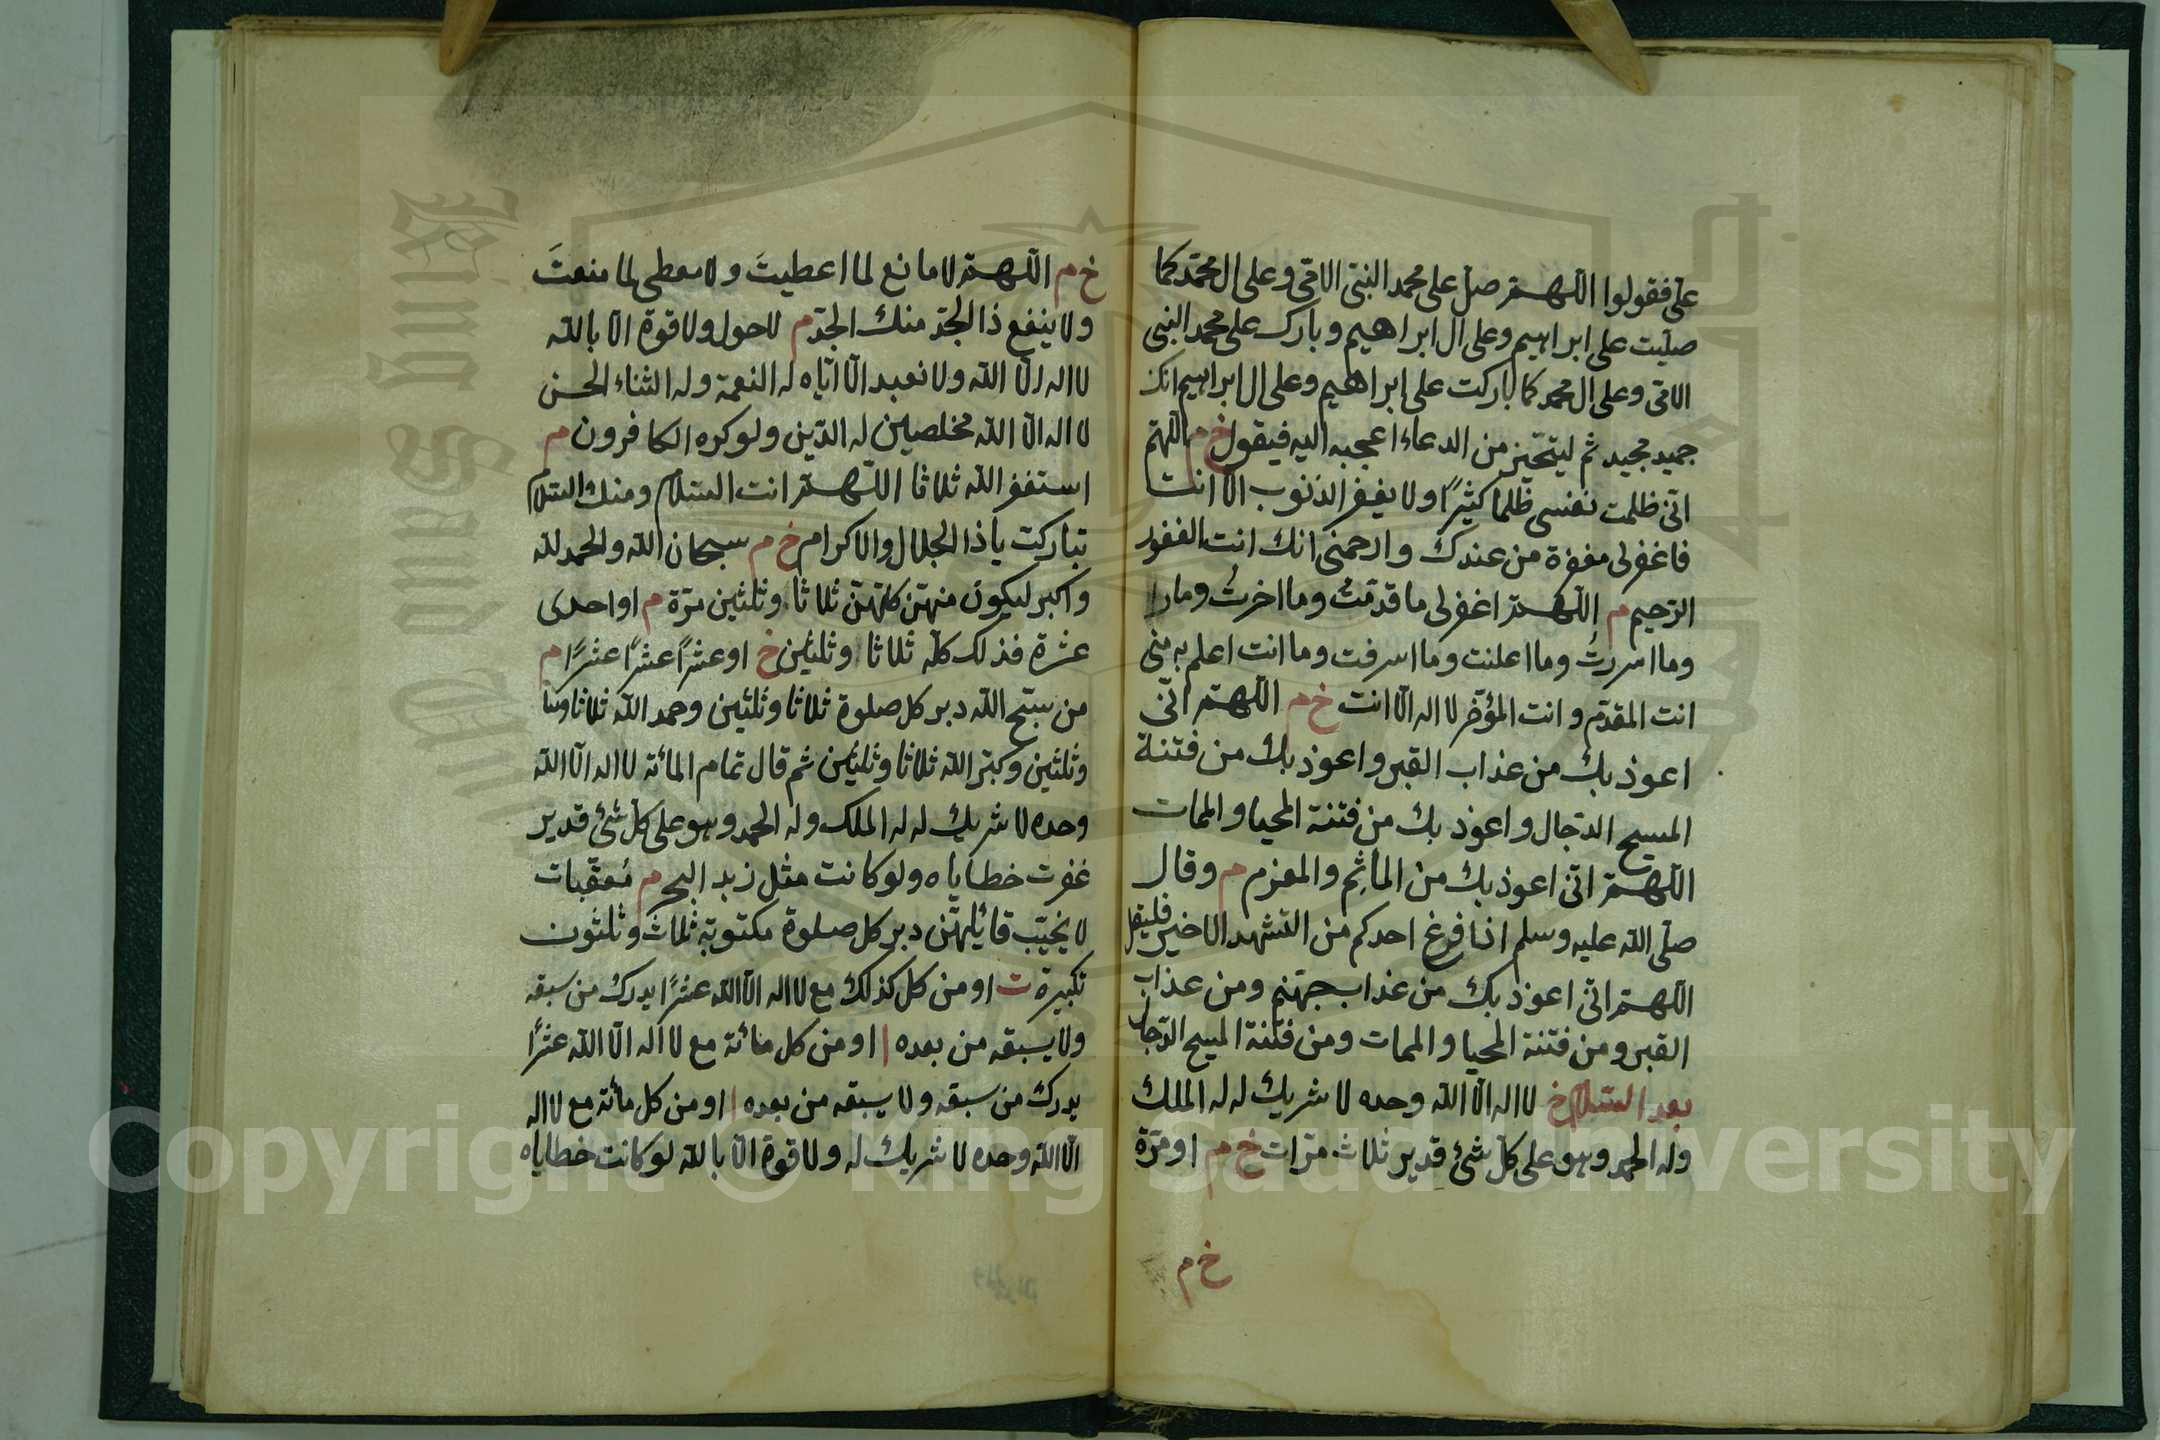 علىّ فقولوا اللّهمّ صلّ على محمد النبىّ الامّى وعلى ال محمّد كما
صلّيت على ابراهيم وعلى ال ابراهيم وبارك على محمد النبى
الامّى وعلى ال محمد كما باركت على ابراهيم وعلى ال ابراهيم انك
حميد مجيد ثم ليتخيّر من الدعاء اعجبه اليه فيقول خ م اللهمّ
انّى ظلمت نفسى ظلما كثيرًا ولا يغفر الذنوب الّا انت
فاغفر لى مغفرة من عندك وارحمنى انك انت الغفور
الرّحيم م اللّهمّ اغفر لى ما قدّمتُ وما اخرتُ وما
وما اسررتُ وما اعلنت وما اسرفت وما انت اعلم به منى
انت المقدّم وانت المؤخّر لا اله الّا انت خ م اللّهمّ انّى
اعوذ بك من عذاب القبر واعوذ بك من فتنة
المسيح الدّجال واعوذ بك من فتنة المحيا والممات
اللّهمّ انّى اعوذ بك من المأثم والمغرم م وقال
صلّى اللّه عليه وسلم اذا فرغ احدكم من التّشهد الاخير فليقل
اللّهمّ انّى اعوذ بك من عذاب جهنّم ومن عذاب
القبر ومن فتنة المحيا والممات ومن فتنة المسيح الدّجال
بعد السّلام خ لا اله الّا اللّه وحده لا شريك له له الملك
وله الحمد وهو على كلّ شئ قدير ثلاث مرّات خ م او مرّة
خ م
خ م اللّهمّ لا مانع لما اعطيتَ ولا معطى لما منعتَ
ولا ينفع ذا الجدّ منك الجدّ م لا حول ولا قوة الّا باللّه
لا اله الّا اللّه ولا نعبد الّا ايّاه له النعمة وله الثناء الحسن
لا اله الّا اللّه مخلصين له الدّين ولو كره الكافرون م
استغفر اللّه ثلاثا اللّهمّ انت السّلام ومنك السّلام
تباركت يا ذا الجلال والاكرام خ م سبحان اللّه والحمد للّه
واكبر ليكون منهنّ كلّهنّ ثلاثا وثلثين مرّة م او احدى
عشرة فذلك كلّه ثلاثا وثلثين خ او عشرًا عشرًا عشرًا م
من سبّح اللّه دبر كل صلوة ثلاثا وثلثين وحمد اللّه ثلاثا
وثلثين وكبّر اللّه ثلاثا وثلثين ثم قال تمام المائة لا اله الّا اللّه
وحده لا شريك له له الملك وله الحمد وهو على كلّ شئ قدير
غفرت خطاياه ولو كانت مثل زبد البحر م مُعقّبات
لا يخيّب قائلهنّ دبر كل صلوة مكتوبة ثلاث وثلثون
تكبيرة ت او من كل كذلك مع لا اله الّا اللّه عشرًا يدرك من سبقه
ولا يسبقه من بعده ا او من كل مائة مع لا اله الّا اللّه عشرًا
يدرك من سبقه ولا يسبقه من بعده ا او من كل مائة مع لا اله
الّا اللّه وحده لا شريك له ولا قوة الّا باللّه لو كانت خطاياه
King Saud University
Copyright © King Saud University